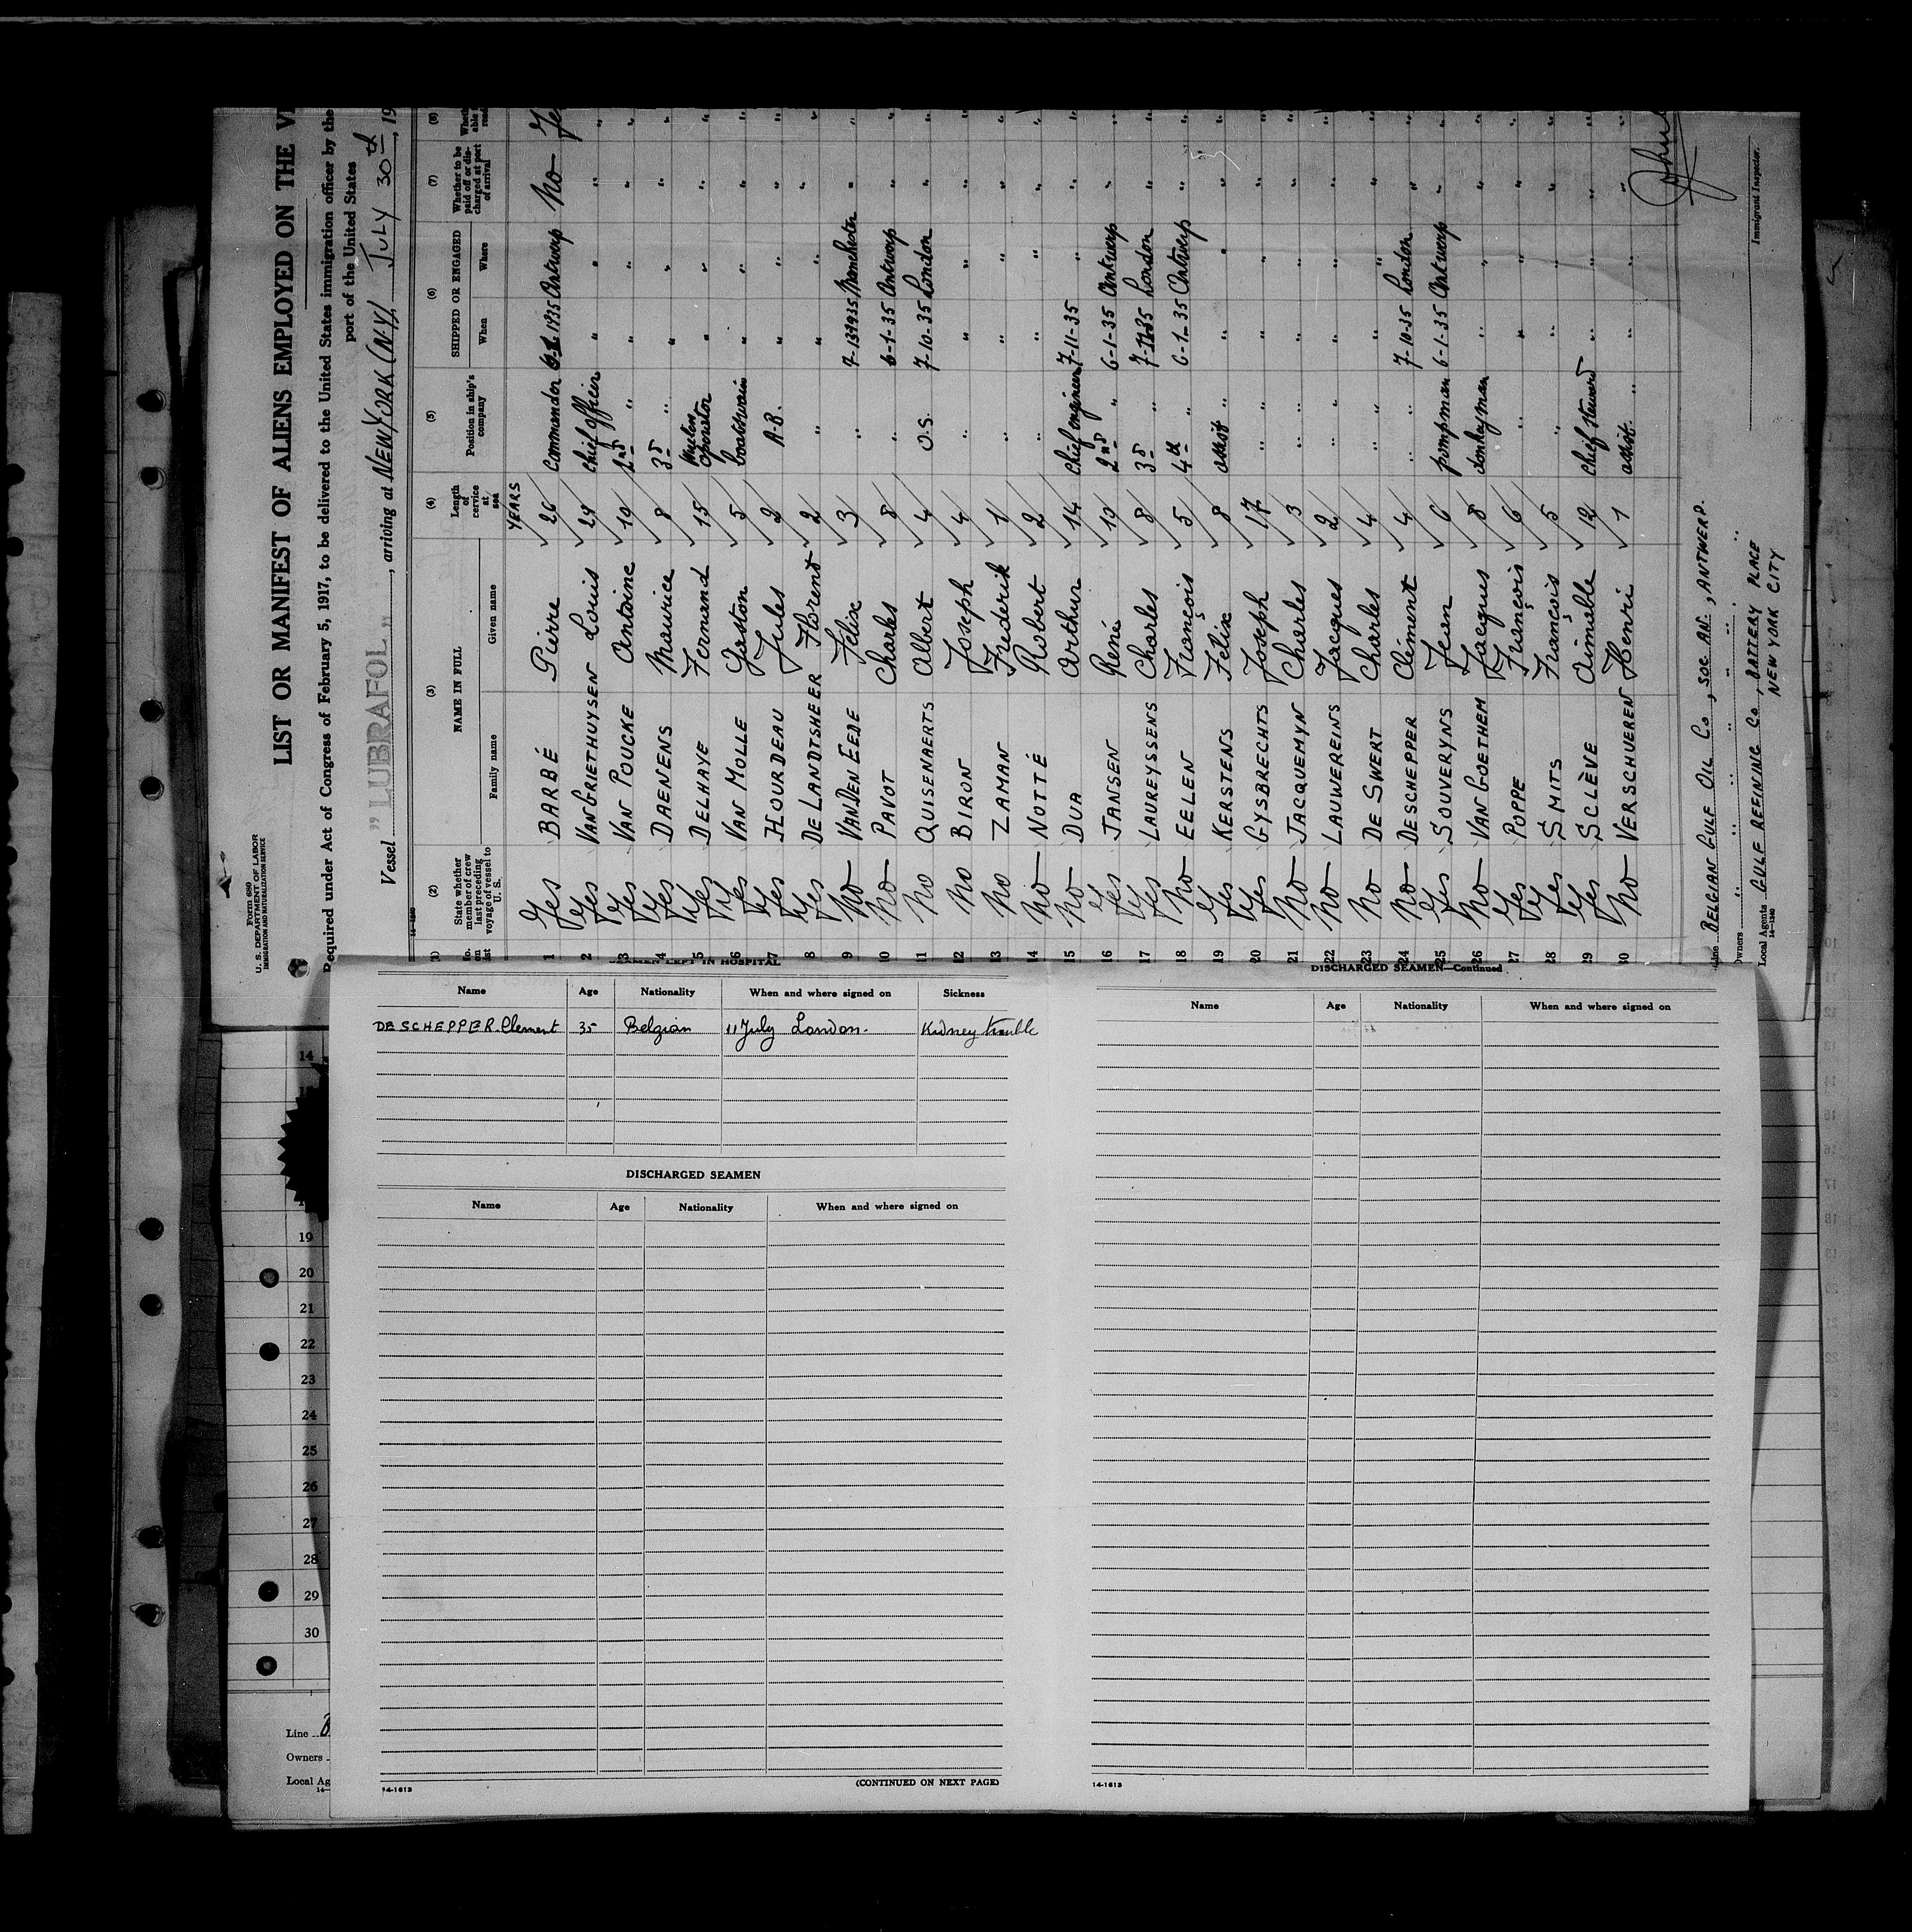 Form 680
U. S. DEPARTMENT OF LABOR
IMMIGRATION AND NATURALIZATION SERVICE
LIST OR MANIFEST OF ALIENS EMPLOYED ON THE
Required under Act of Congress of February 5, 1917, to be delivered to the United States immigration officer by the
port of the United States
Vessel "LUBRAFOL", arriving at NEW YORK (N.Y), JULY 30th, 19
(1) (2) (3) (4) (5) (6) (7) (8)
State whether member of crew last preceding voyage of vessel to U. S.
NAME IN FULL
Family name Given name
Length of service at sea
YEARS
Position in ship's company
SHIPPED OR ENGAGED
When Where
Whether to be paid off or discharged at port of arrival
1 Yes BARBÉ Pierre 26 Commander 1935 Antwerp No
2 Yes VAN GRIETHUYSEN Louis 29 chief officer " " "
3 Yes VAN POUCKE Antoine 10 2nd " " " "
4 Yes DAENENS Maurice 8 3d " " " "
5 Yes DELHAYE Fernand 15 operator " " "
6 Yes VAN MOLLE Gaston 5 boatswain " " "
7 Yes HOURDEAU Jules 2 A-B. " " "
8 Yes DE LANDTSHEER Florent 2 " " " "
9 No VAN DEN EEDE Félix 3 " Manchester "
10 No PAVOT Charles 8 " 6-1-35 Antwerp "
11 No QUISENAERTS Albert 4 O.S. 7-10-35 London "
12 No BIRON Joseph 4 " " " "
13 No ZAMAN Frederik 1 " " " "
14 No NOTTÉ Robert 2 " " " "
15 No DUA Arthur 14 chief engineer 7-11-35 " "
16 Yes JANSEN René 10 2nd " 6-1-35 Antwerp "
17 Yes LAUREYSSENS Charles 8 3d " London "
18 No EELEN François 5 4th " 6-1-35 Antwerp "
19 Yes KERSTENS Félix 8 assist " " "
20 Yes GYSBRECHTS Joseph 17 " " " "
21 No JACQUEMYN Charles 3 " " " "
22 No LAUWEREINS Jacques 2 " " " "
23 No DE SWERT Charles 4 " " " "
24 No DESCHEPPER Clément 4 " 7-10-35 London "
25 Yes SOUVERYNS Jean 6 pompman 6-1-35 Antwerp "
26 No VAN GOETHEM Jacques 8 donkeyman " " "
27 Yes POPPE François 6 " " " "
28 Yes SMITS François 5 " " " "
29 Yes SCLÈVE Aimable 12 chief steward " " "
30 No VERSCHUEREN Henri 1 assist. " " " "
Line BELGIAN GULF OIL Co, SOC. AN., ANTWERP.
Owners " " " " " "
Local Agents GULF REFINING Co, BATTERY PLACE
NEW YORK CITY
14-1240
Immigrant Inspector.
SEAMEN LEFT IN HOSPITAL
Name Age Nationality When and where signed on Sickness
DE SCHEPPER Clement 35 Belgian 11 July London. Kidney trouble
DISCHARGED SEAMEN
Name Age Nationality When and where signed on
14-1613
(CONTINUED ON NEXT PAGE)
DISCHARGED SEAMEN—Continued
Name Age Nationality When and where signed on
14-1613
14
19
20
21
22
23
24
25
26
27
28
29
30
Line
Owners
Local Ag